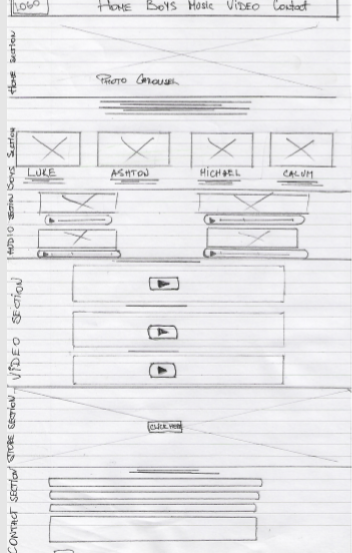 LOGO
HOME BOYS MUSIC VIDEO Contact
HOME SECTION
PHOTO CAROUSEL
BOYS SECTION
LUKE ASHTON MICHAEL CALUM
AUDIO SECTION
VIDEO SECTION
STORE SECTION
CLICK HERE
CONTACT SECTION